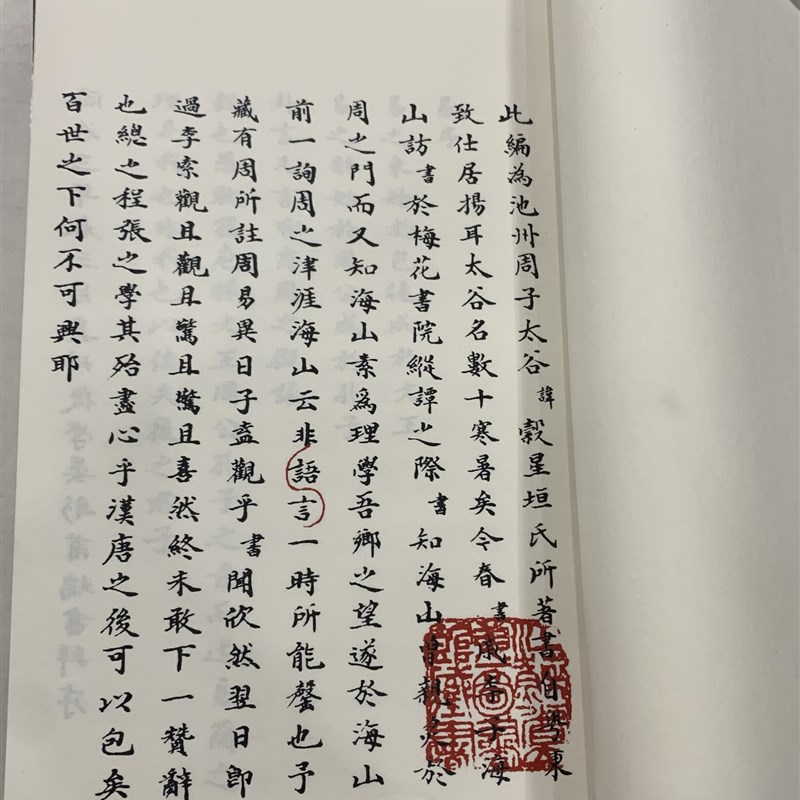 此編為池州周子太谷諱縠星垣氏所著書自粵東
致仕居揚耳太谷名數十寒暑矣今春書戚李子海
山訪書於梅花書院縱譚之際書知海山曾親炙於
周之門而又知海山素爲理學吾鄉之望遂於海山
前一詢周之津涯海山云非語言一時所能罄也予
藏有周所註周易異日子盍觀乎書聞欣然翌日即
過李索觀且觀且驚且驚且喜然終未敢下一贊辭
也總之程張之學其殆盡心乎漢唐之後可以包矣
百世之下何不可興耶